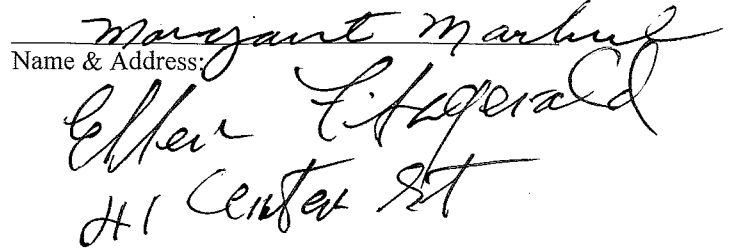 Margaret
Name & Address:
Ellen Fitzgerald
41 Center St